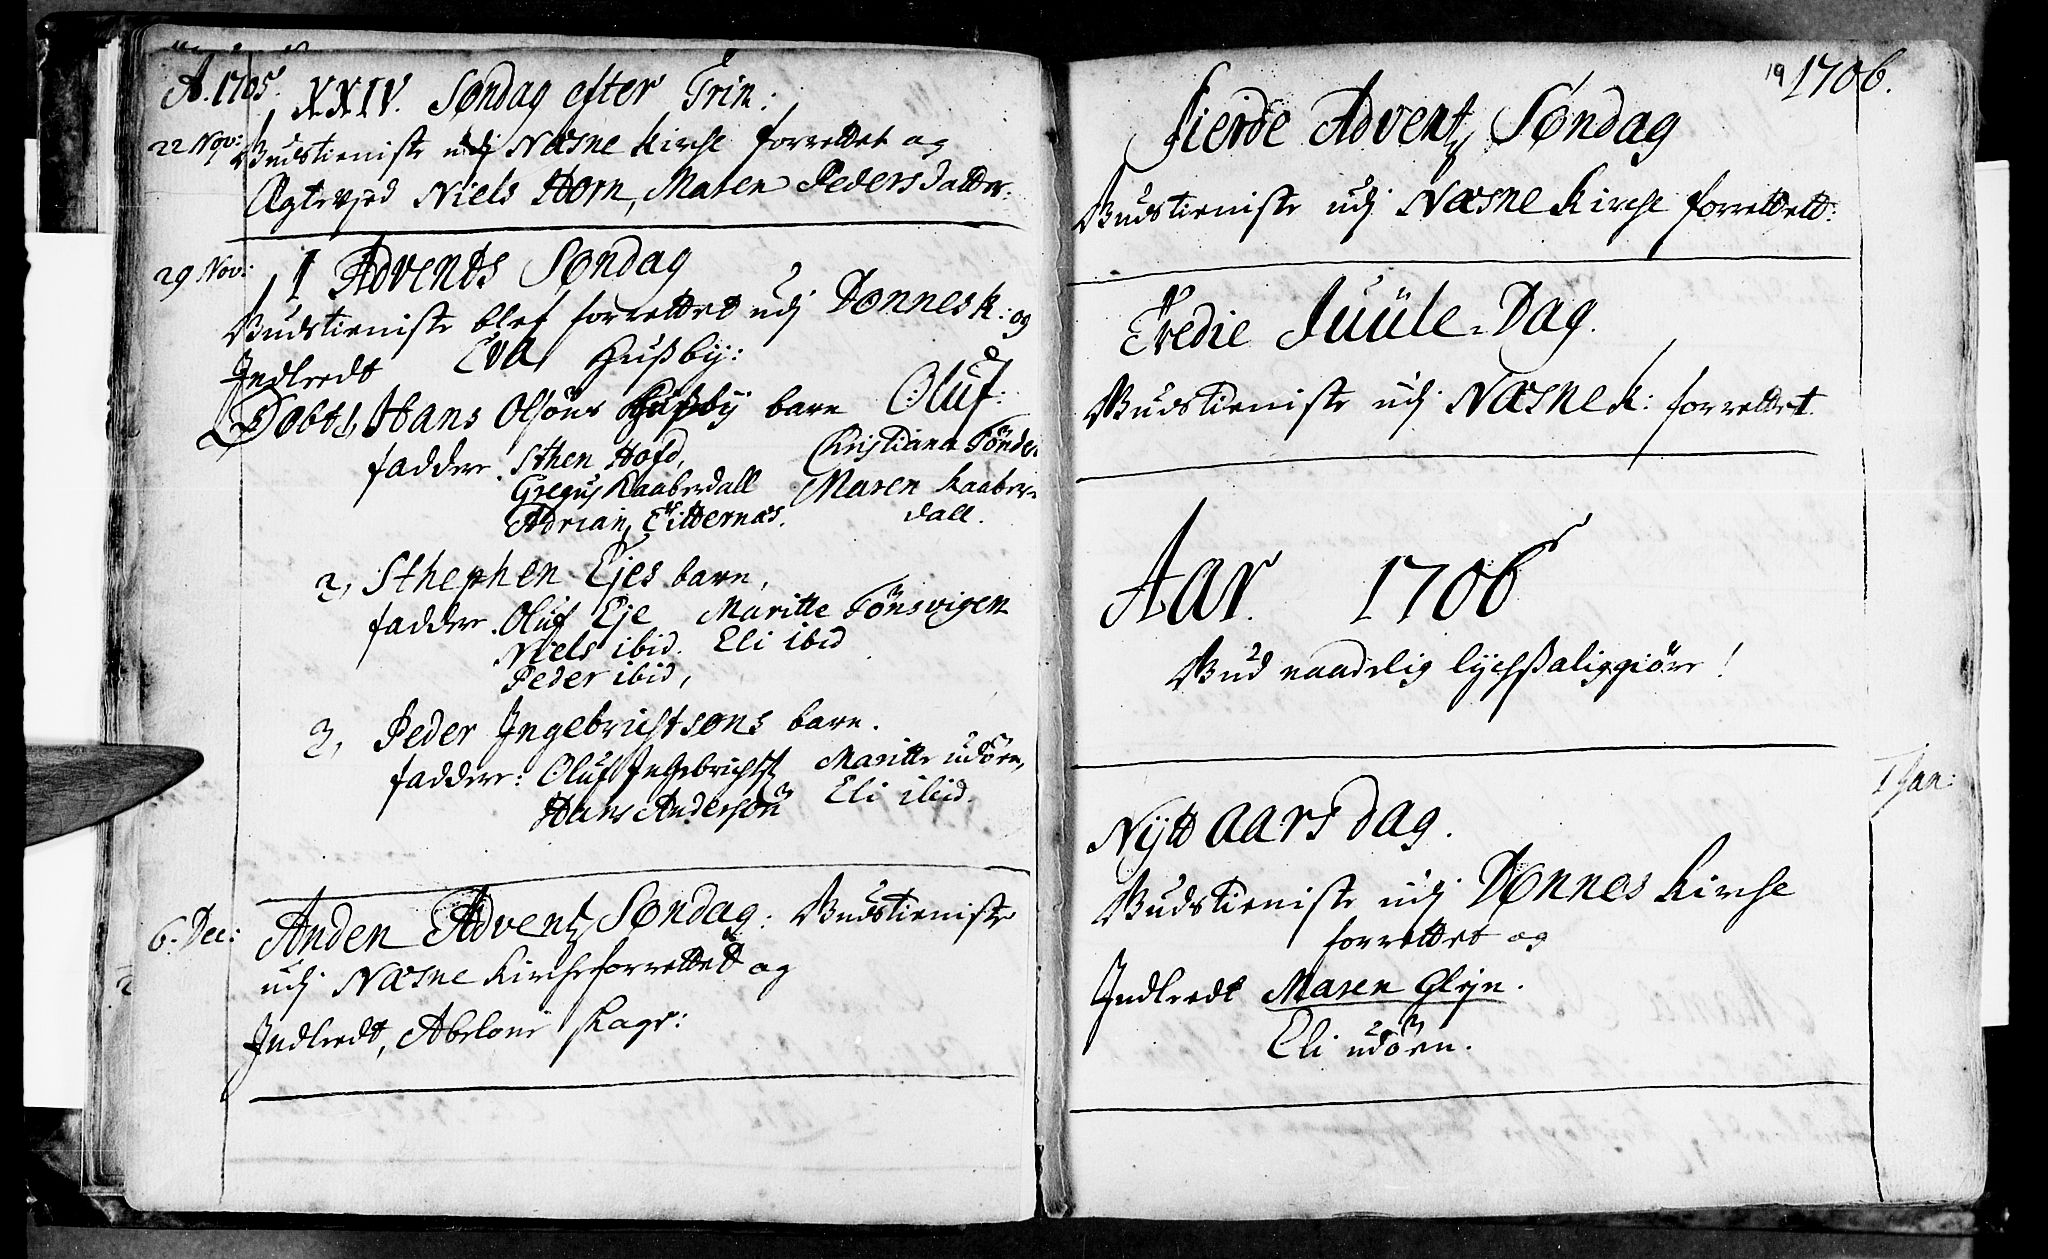 A. 1705.
XXIV. Søndag efter Trin:
22 Nov: Gudstieniste udj Næsne Kirche forrettet og
Ægtevied Niels Horn, Maren Pedersdatter.
29 Nov: I Advents Søndag
Gudstieniste blef forrettet udj Dønnes k: og
Indledt Eva Husby:
Døbt 1, Hans Olsøns Husby barn Oluf:
faddere. Sthen Hofd, Christiana Tønder
Gregus Kaaberdall Maren Kaaber-
Adrian Titternæs. dall.
2, Sthephen Ejes barn,
faddere. Oluf Eje Maritte Tønsvigen
Niels ibid. Eli ibid
Peder ibid,
3, Peder Ingebrichtsøns barn.
faddere: Oluf Ingebrichtsz Maritte udøen,
Hans Andersøn Eli ibid.
6. Dec: Anden Adventz Søndag: Gudstieniste
udj Næsne Kirche forrettet og
Indledt, Abelone Skage:
19 1706.
Fierde Adventz Søndag
Gudstieniste udj Næsne Kirche forrettett:
Tredie Juule-Dag.
Gudstieniste udj Næsne k: forrettet.
Aar. 1706
Gud naadelig lychsaliggiøre!
1 Jan:
Nytt aars dag.
Gudstieniste udj Dønnes Kirche
forrettet og
Indledt Maren Glejn.
Eli udøen.